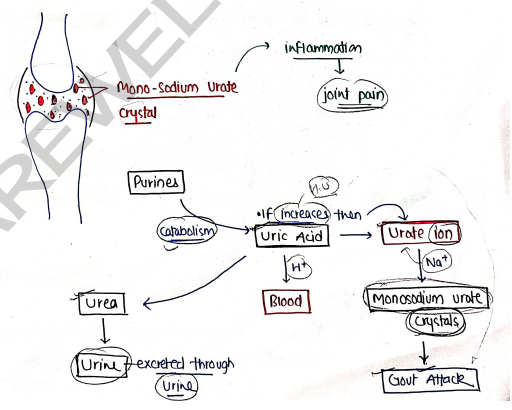 inflammation
Mono-sodium urate
crystal
joint pain
Purines
•If increases then
catabolism
Uric Acid
Urate ion
H+
Na+
Urea
Blood
Monosodium urate
crystals
Urine
excreted through
Urine
Gout Attack
AREWEL